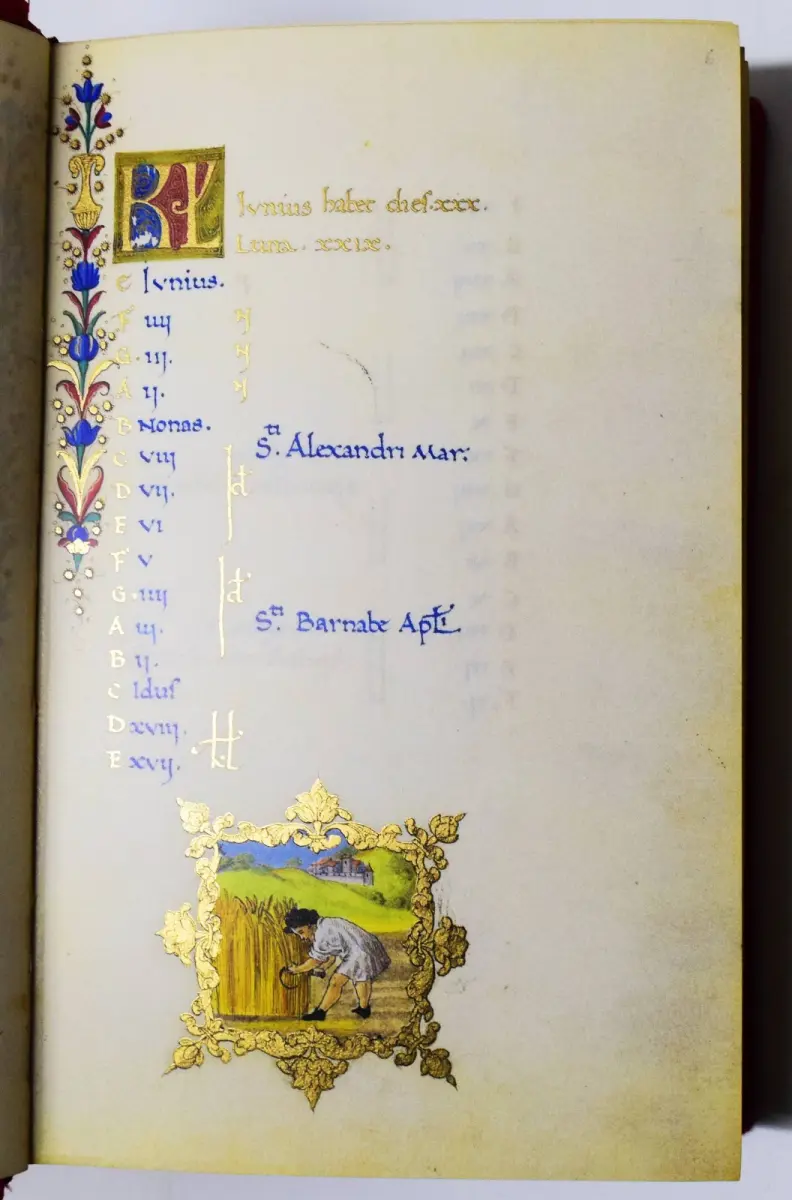 6
KL Iunius habet dies.xxx.
Luna. xxix.
E Iunius.
F iiij N
G. iij. N
A ij. N
B Nonas.
C viij Sti. Alexandri Mar:
D vij. d
E vi
F v
G. iiij d
A iij. Sti. Barnabe Apli
B ij.
C Idus
D xviij.
E xvij. kl